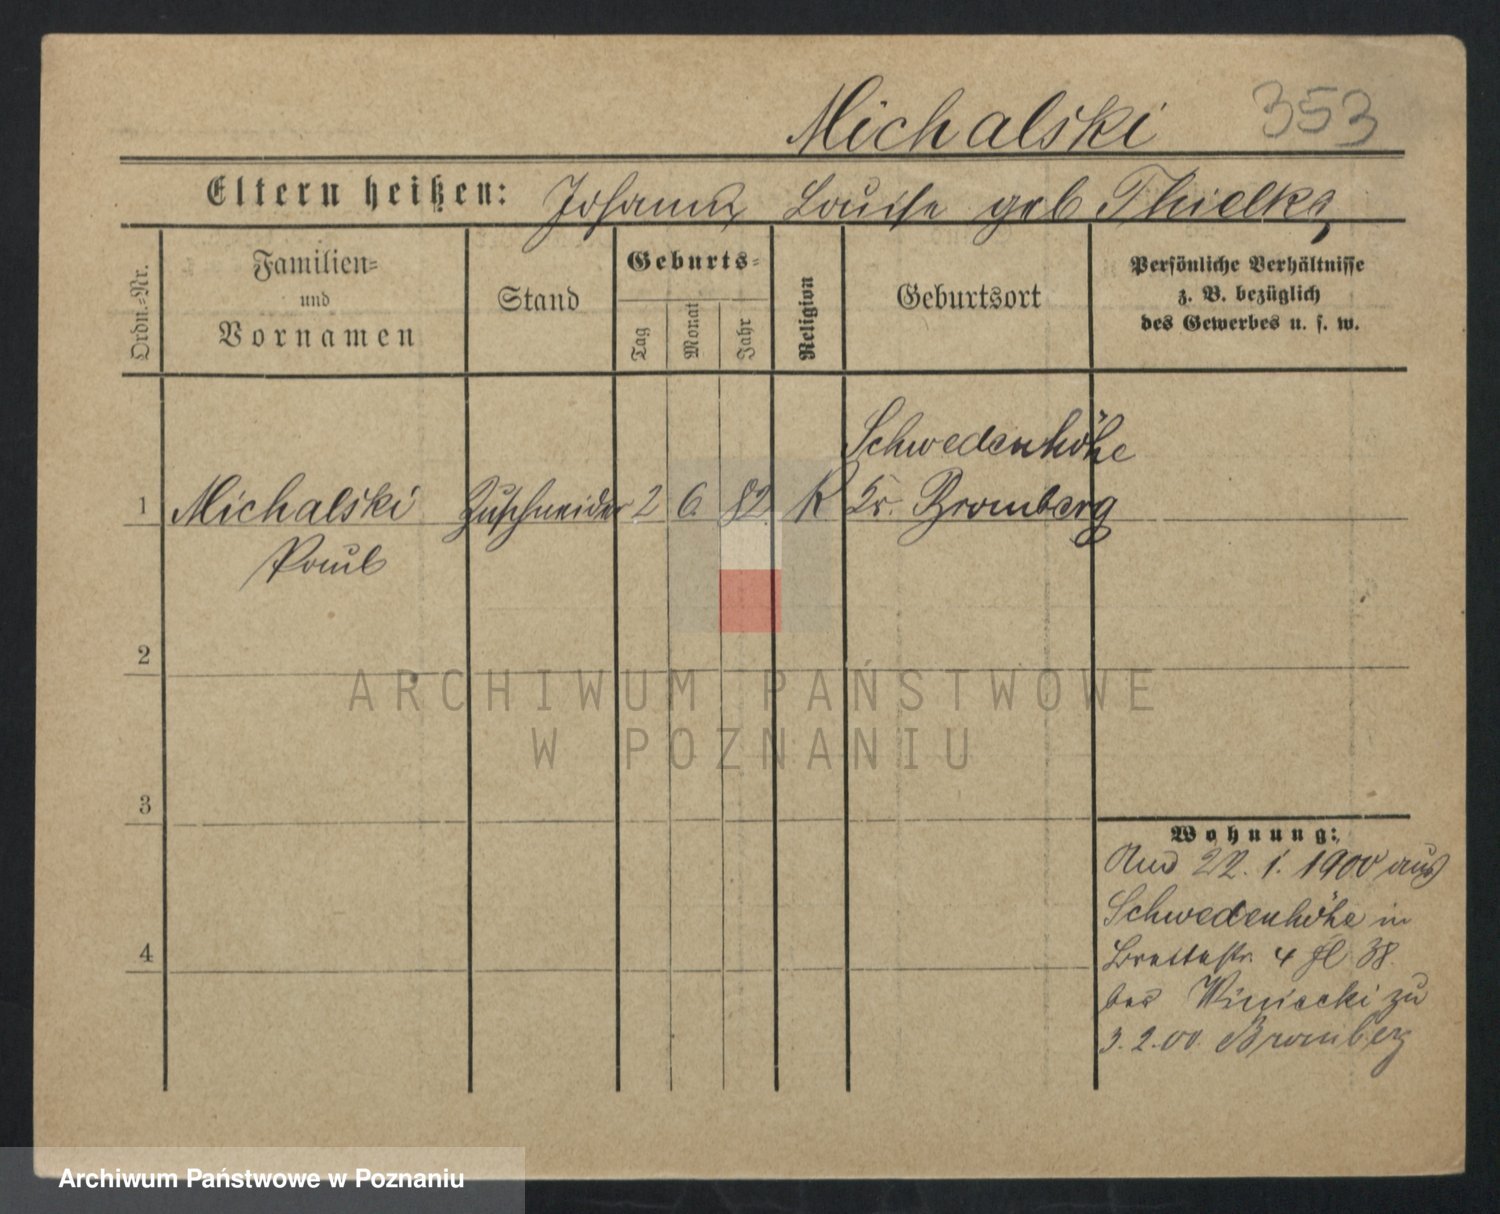 Michalski 353
Eltern heißen: Johann, Louise geb Thielke
Ordn.=Nr.
Familien=
und
Vornamen
Stand
Geburts=
Tag
Monat
Jahr
Religion
Geburtsort
Persönliche Verhältnisse
z. B. bezüglich
des Gewerbes u. s. w.
Schwedenhöhe
1 Michalski Zuschneider 2 6 82 K Kr. Bromberg
Paul
2
ARCHIWUM PAŃSTWOWE
W POZNANIU
3
Wohnung:
22. 1. 1900 aus
Schwedenhöhe in
4
4 38.
zu
3. 2. 00. Bromberg
Archiwum Państwowe w Poznaniu